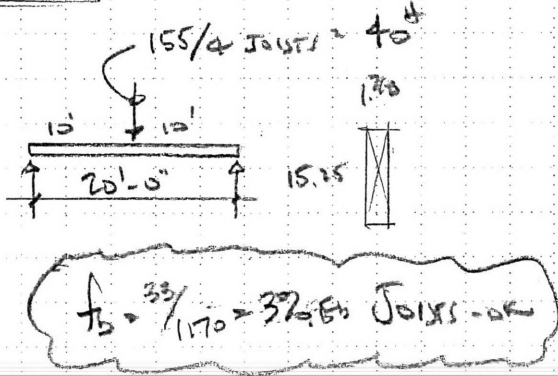 155/4 JOISTS = 40#
10' 10'
20'-0"
15.25
fb = 33/1170 = 3% Fb JOISTS - OK